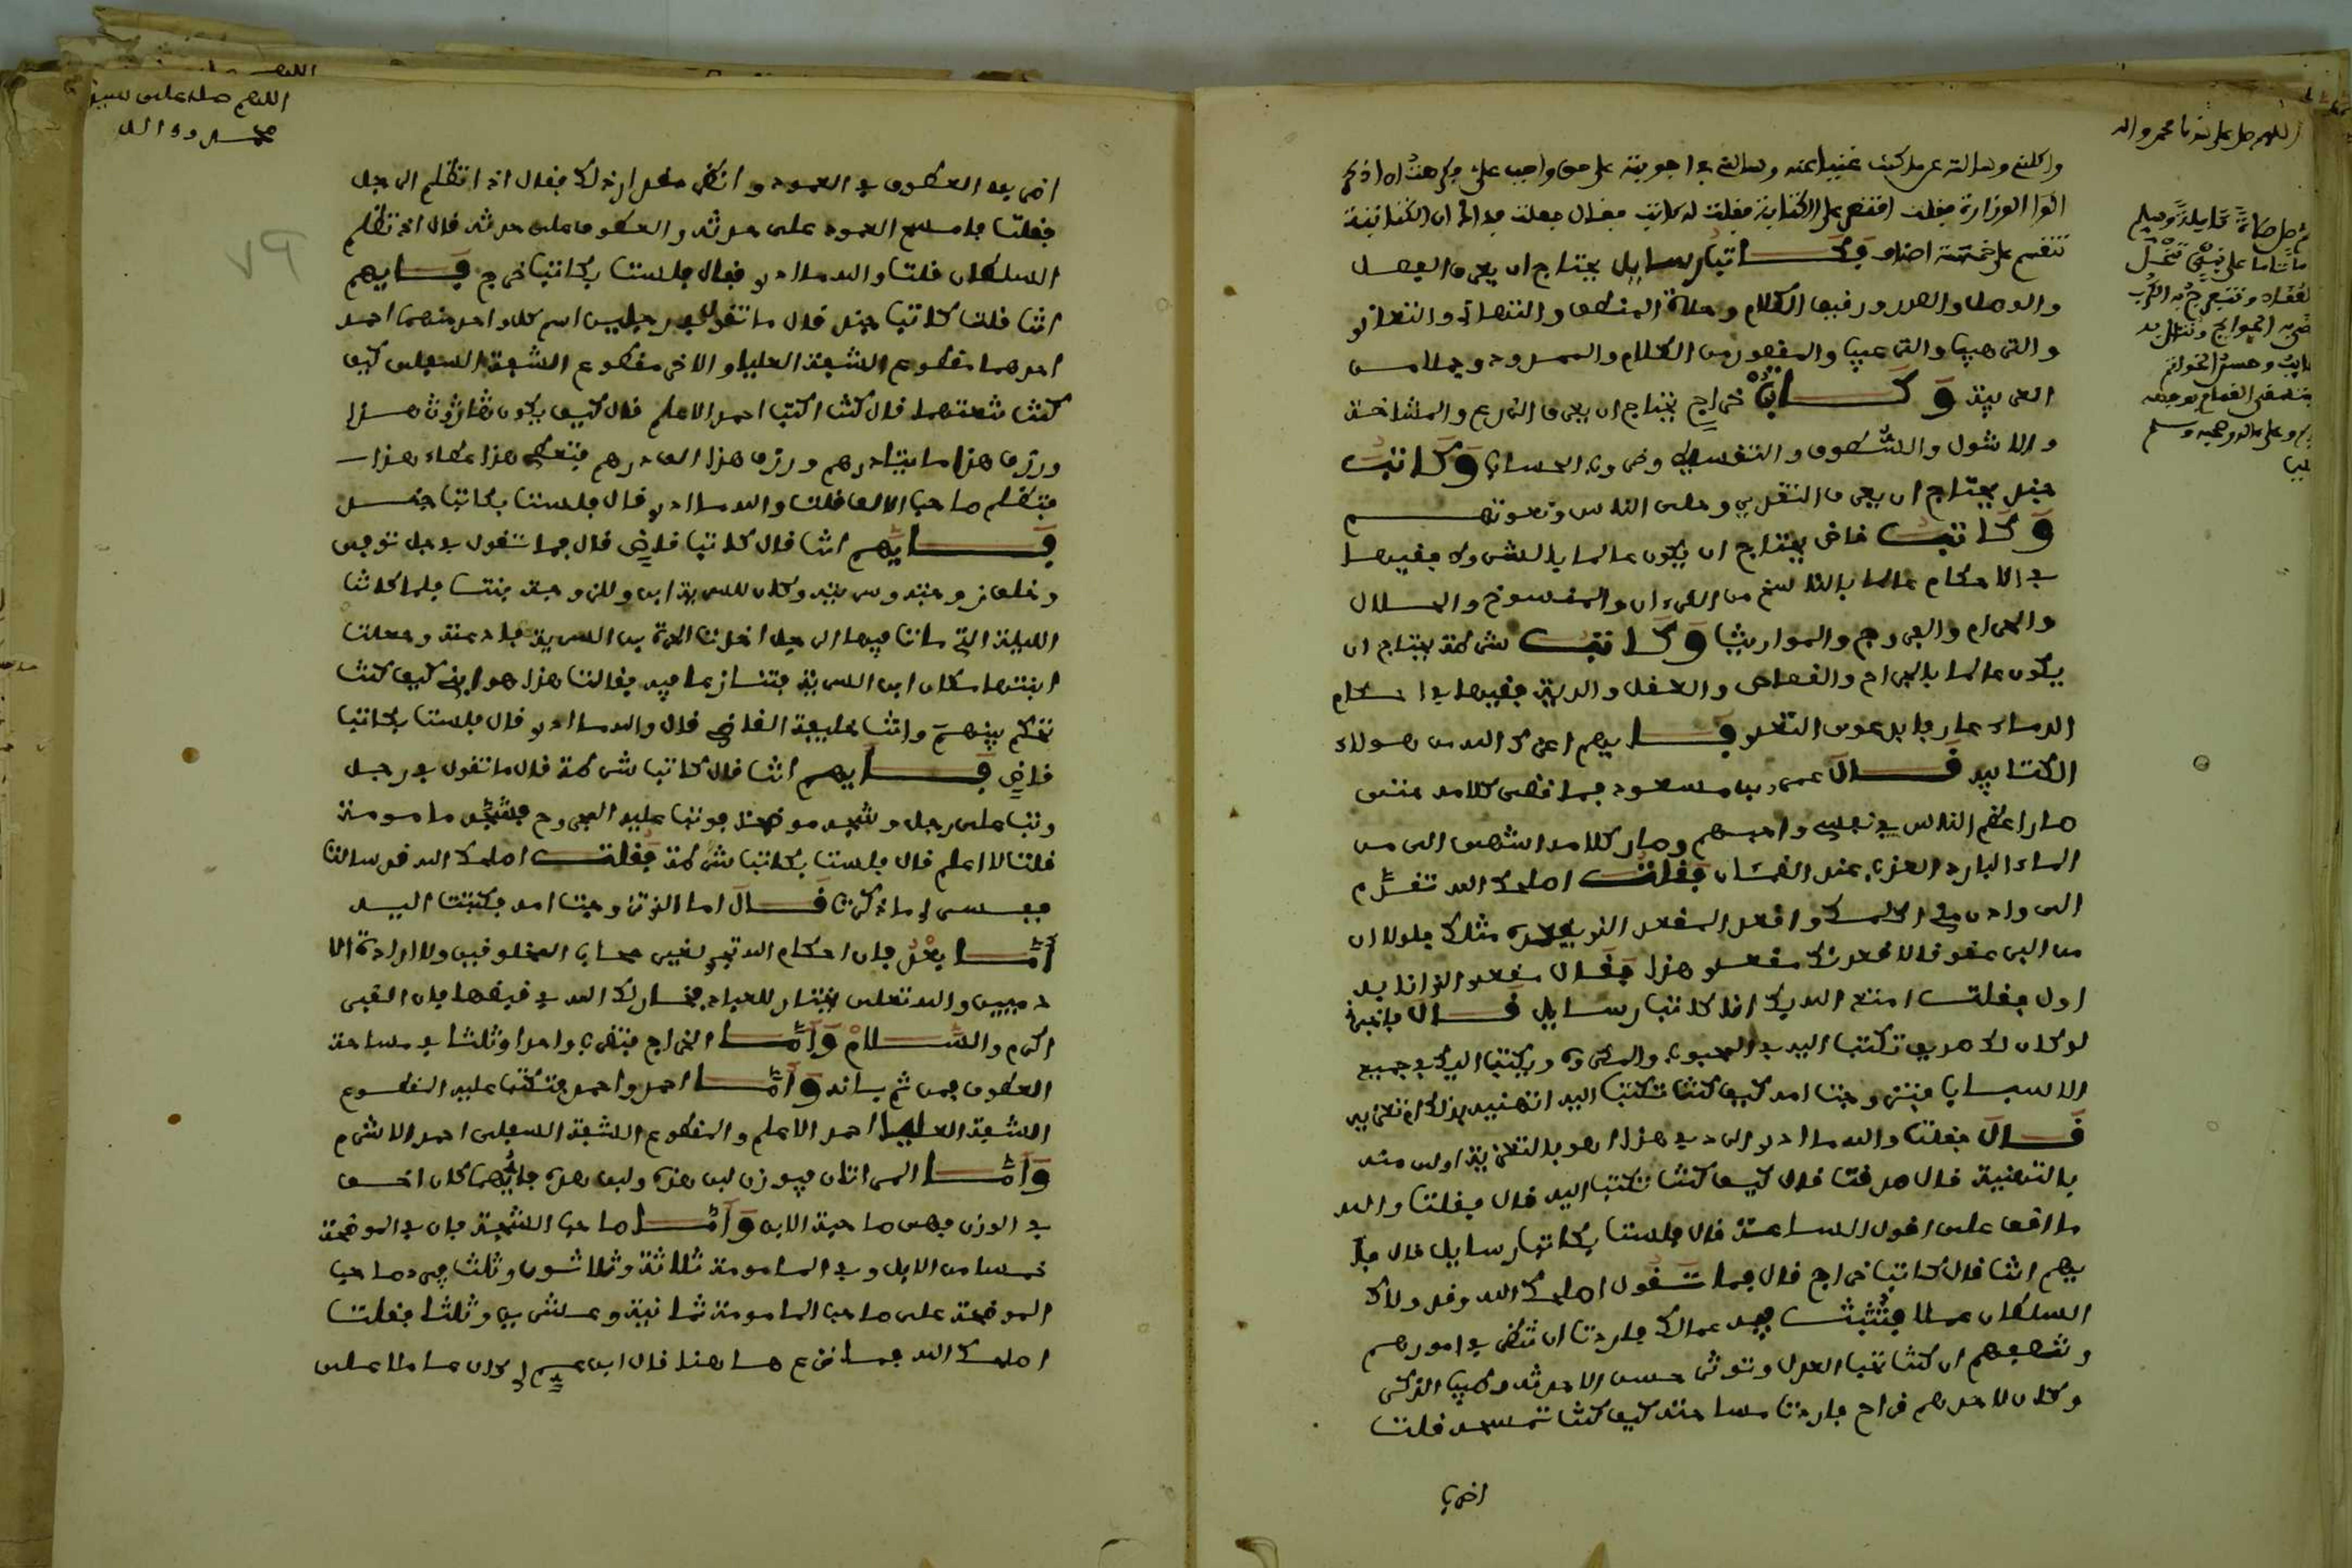 اللهم صل على سيدنا محمد واله
واكلته وسالته عن ما كنت غنيا عنه وسالته في اجوبته على حق واجب على
الوا الوزارة فقلت اقتصر على الكتابة فقلت له كاتب فقال فعلت فداك ان الكتابة
تنقسم على خمسة اصناف فكاتب رسايل يحتاج ان يعرف الفصل
والوصل والصدور ورقيق الكلام و والتهاني والتعازي
والترهيب والترغيب والمقصور من الكلام والممدود وجملا من
العربية وكاتب خراج يحتاج ان يعرف الزرع والمساحة
والاشول والطسوق والتقسيط وضروب الحساب وكاتب
جند يحتاج ان يعرف التقدير وحلى الناس ونعوتهم
وكاتب قاض يحتاج ان يكون عالما بالشروط فقيها
في الاحكام عالما بالناسخ من القرءان والمنسوخ والحلال
والحرام والفروج والمواريث وكاتب شرطة يحتاج ان
يكون عالما بالجراح والقصاص والعقل والدية فقيها في احكام
الدماء عارفا بدعوى التعدي فايهم اعزك الله من هولاء
الكتاب قال عمرو بن مسعود فما انقضى كلامه حتى
صار اعظم الناس في نفسي واحبهم وصار كلامه اشهى الي من
الماء البارد العذب عند الظمئان فقلت اصلحك الله تقدم
الي وادن مني اكلمك واقعد المقعد الذي يقعده مثلك فلولا ان
من البر عقوقا لاقعدتك مقعدي هذا فقال مقعدي الذي انا به
اولى فقلت امتع الله بك انا كاتب رسايل قال فاخبرني
لو كان لك صديق تكتب اليه في المحبوب والمكروه ويكتب اليك في جميع
الاسباب فتزوجت امه كيف كنت تكتب اليه اتهنيه بذلك ام تعزيه
قال فقلت والله ما ادري في هذا هو بالتعزية اولى منه
بالتهنية قال صدقت قال كيف كنت تكتب اليه قال فقلت والله
ما اقف على اقول الساعة قال فلست بكاتب رسايل قال فا
يهم انت قال كاتب خراج قال فما تقول اصلحك الله وقد ولاك
السلطان عملا فثبت فيه عمالك فاردت ان تنظر في امورهم
وتنصفهم ان كنت تحب العدل وتوثر حسن الاحدوثة وطيب الذكر
وكان لاحدهم قراح فاردت مساحته كيف كنت تمسحه قلت
اضرب
اللهم صل على سيدنا
محمد وواله
٧٩
اضرب العطوف في العمود وانظر مقدار ذلك فقال اذا تظلم الرجل
فقلت فامسح العمود على حدته والعطوف على حدته قال اذ تظلم
السلطان قلت والله ما ادري فقال فلست بكاتب خراج فايهم
انت قلت كاتب جند قال ما تقول في رجلين اسم كل واحد منهما احمد
احدهما مقطوع الشفة العليا والاخر مقطوع الشفة السفلى كيف
كنت تنعتهما قال كنت اكتب احمد الاعلم قال كيف يكون هذا هذا
ورزق هذا مايتا درهم ورزق هذا الف درهم فيعطى هذا عطاء هذا
فتظلم صاحب الالف قلت والله ما ادري قال فلست بكاتب جند
فايهم انت قال كاتب قاض قال فما تقول في رجل توفي
وخلف زوجته وسريته وكان للسرية ابن وللزوجة بنت فلما كانت
الليلة التي مات فيها الرجل اخذت الحرة ابن السرية فادعته وجعلت
ابنتها مكان ابن السرية فتنازعا فيه فقالت هذا هو ابني كيف كنت
تحكم بينهم وانت خليفة القاضي قال والله ما ادري قال فلست بكاتب
قاض فايهم انت قال كاتب شرطة قال ما تقول في رجل
وثب على رجل وشجه موضحة فوثب عليه المجروح فشجه مامومة
قلت لا اعلم قال فلست بكاتب شرطة فقلت اصلحك الله قد سالت
ففسر لي ما ذكرت قال اما الذي تزوجت امه فكتبت اليه
اما بعد فان احكام الله تجري لغير محاب المخلوقين ولا ارادة الا
دميين والله تعلى يختار للعباد فخار لك الله في قبضها فان القبر
اكرم والسلام واما الخراج فتضرب واحدا وثلثا في مساحة
العطوف فمن ثم بانه واما احمد واحمد فتكتب عليه المقطوع
الشفة العليا احمد الاعلم والمقطوع الشفة السفلى احمد الاشرم
واما المراتان فيوزن لبن هذه ولبن هذه فايهما كان اخف
في الوزن فهي صاحبة الابن واما صاحب الشجة فان في الموضحة
خمسا من الابل وفي المامومة ثلاثة وثلاثون وثلث فيرد صاحب
الموضحة على صاحب المامومة ثمانية وعشرين وثلثا فقلت
اصلحك الله فما نزع هاهنا قال ابن عم لي كان عاملا على